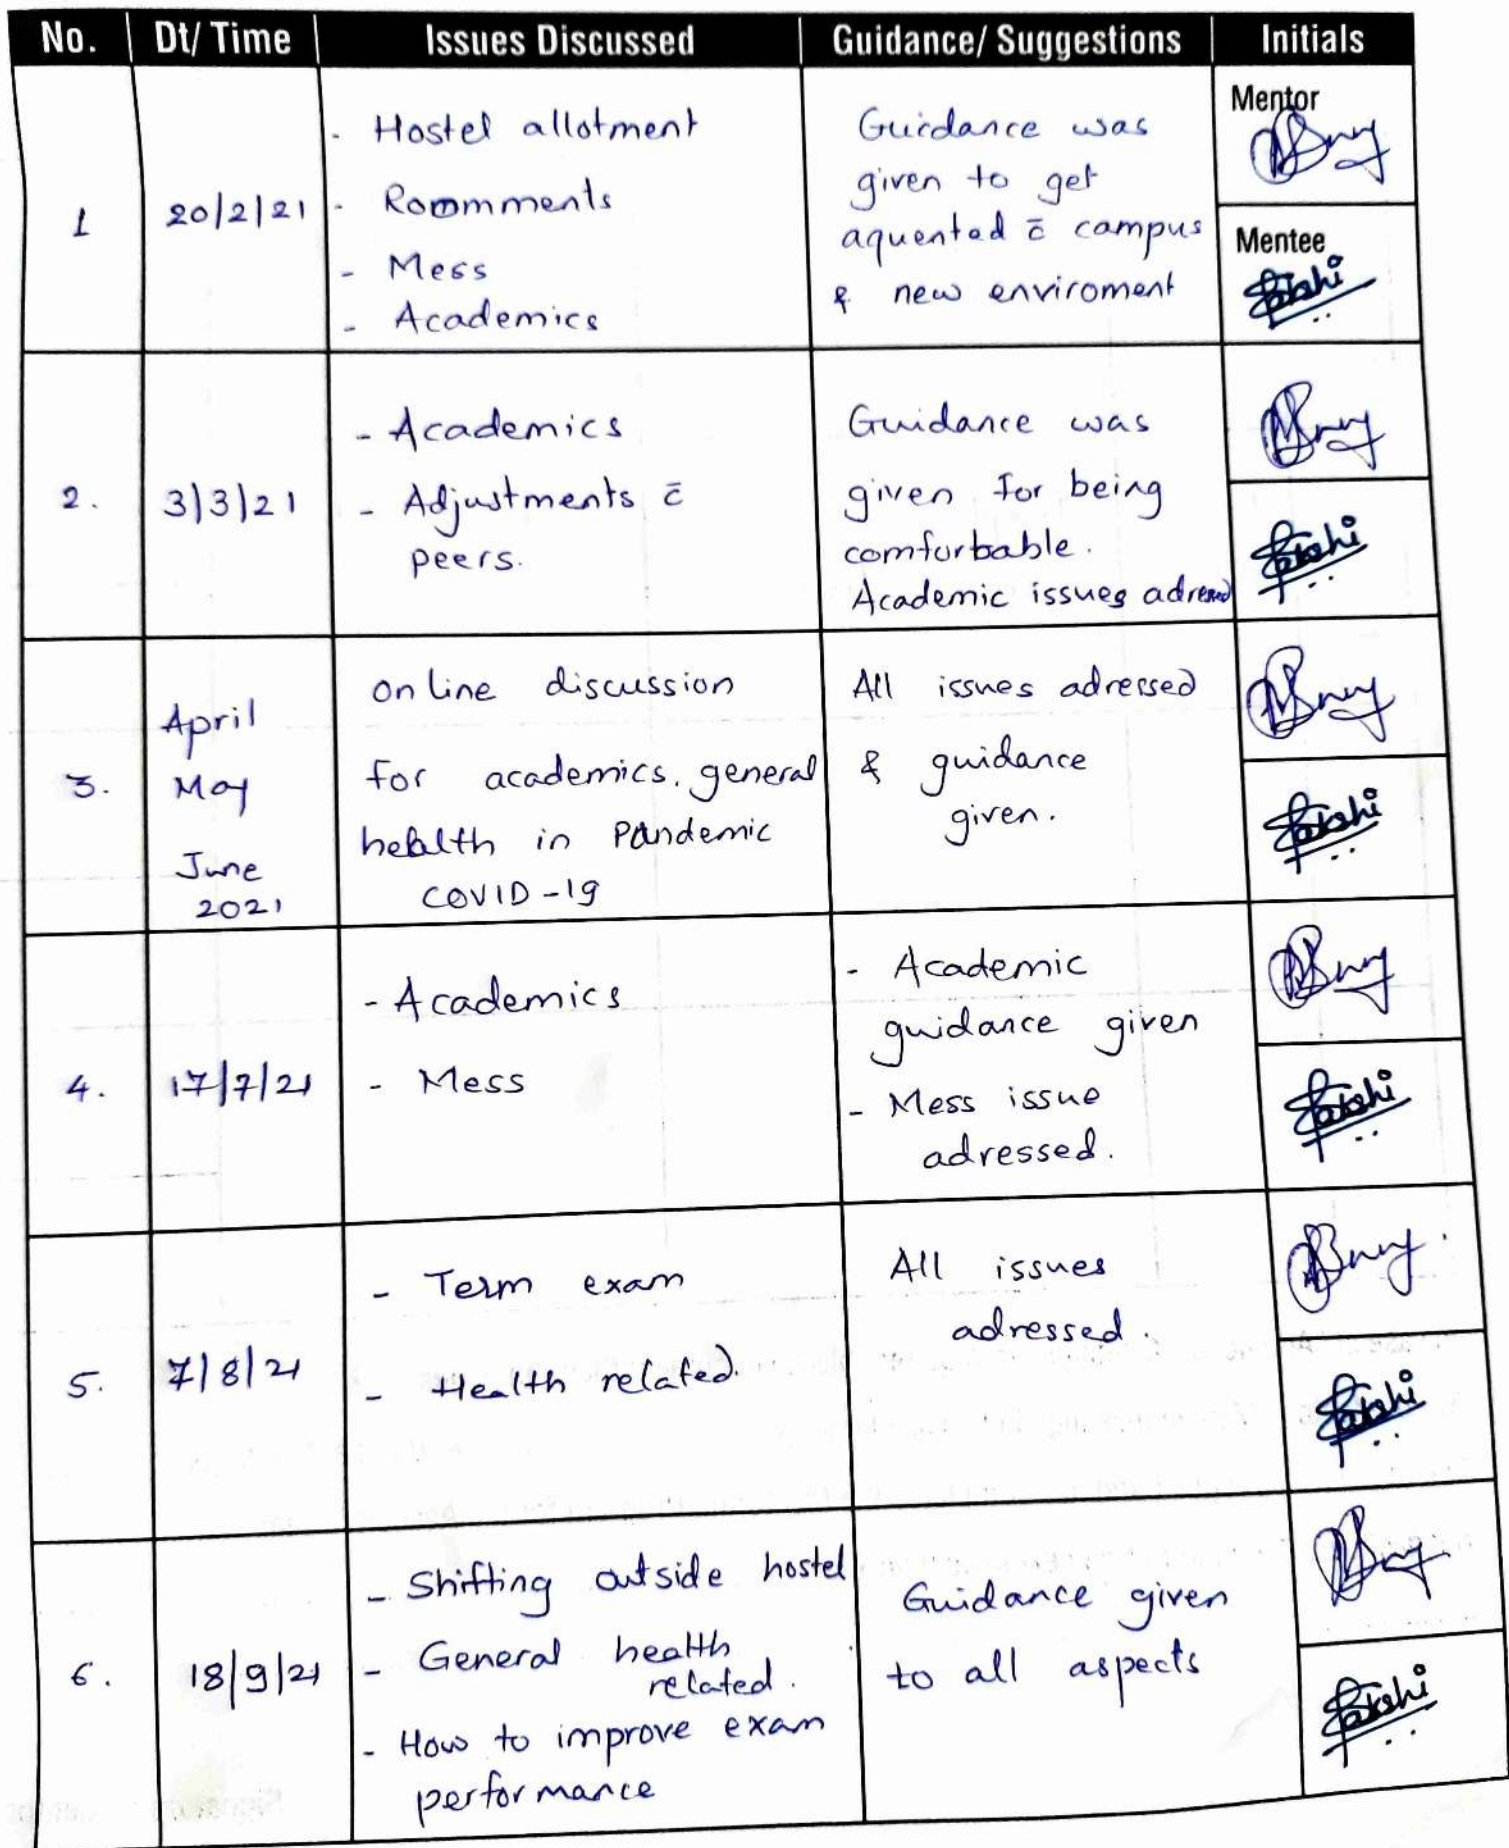 No. Dt/ Time Issues Discussed Guidance/ Suggestions Initials
1
20/2/21
- Hostel allotment
- Roommments
- Mess
- Academics
Guidance was
given to get
aquented c̄ campus
& new enviroment
Mentor
Mentee
Sakshi
2.
3/3/21
- Academics
- Adjustments c̄
peers.
Guidance was
given for being
comfurbable.
Academic issues
Sakshi
3.
April
May
June
2021
online discussion
for academics, general
health in Pandemic
COVID-19
All issues adressed
& guidance
given.
Sakshi
4.
17/7/21
- Academics
- Mess
- Academic
guidance given
- Mess issue
adressed.
Sakshi
5.
7/8/21
- Term exam
- Health related.
All issues
adressed.
Sakshi
6.
18/9/21
- Shifting outside hostel
- General health
related.
- How to improve exam
performance
Guidance given
to all aspects
Sakshi